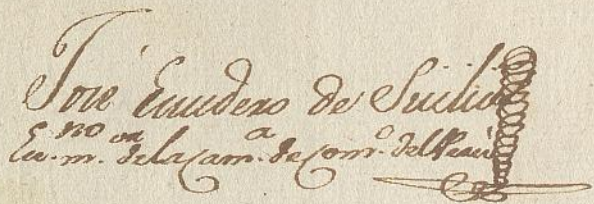 José Escudero de Sicilia
Es.no m.or de la Cam.a de Com.o del Perú